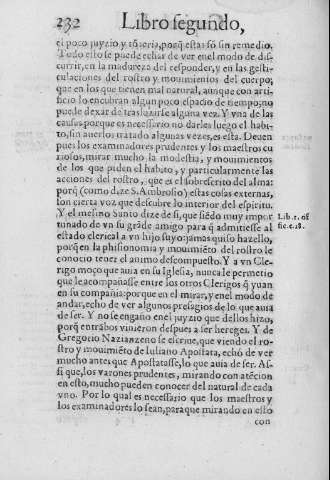 232 Libro segundo,
el poco juyzio y tōteria, porq̃ estas sō sin remedio.
Todo esto se puede echar de ver en el modo de dis-
currir, en la madureza del responder, y en las gesti-
culaciones del rostro y mouimientos del cuerpo;
que en los que tienen mal natural, aunque con arti-
ficio lo encubran algun poco espacio de tiempo; no
puede dexar de trasluzirse alguna vez. Y vna de las
causas porque es necessario no darles luego el habi-
to, sin auerlos tratado algunas vezes, es esta. Deuen
pues los examinadores prudentes y los maestros cu
riosos, mirar mucho la modestia, y mouimientos
de los que piden el habito, y particularmente las
acciones del rostro, que es el sobrescrito del alma:
porq̃ (como dize S. Ambrosio) estas cosas externas,
son cierta voz que descubre lo interior del espiritu.
Y el mesmo Santo dize de si, que siēdo muy impor
tunado de vn su grāde amigo para q̃ admitiesse al
estado clerical a vn hijo suyo: jamas quiso hazello,
porq̃ en la phisionomia y mouimiēto del rostro le
conocio tener el animo descompuesto. Y a vn Cle-
rigo moço que auia en su Iglesia, nunca le permetio
que le acompañasse entre los otros Clerigos q̃ yuan
en su compañia: porque en el mirar, y en el modo de
andar, echo de ver algunos presagios de lo que auia
de ser. Y no se engaño en el juyzio que dellos hizo,
porq̃ entrābos vinieron despues a ser hereges. Y de
Gregorio Nazianzeno se escriue, que viendo el ro-
stro y mouimiēto de Iuliano Apostata, echó de ver
mucho antes que Apostatasse, lo que auia de ser. As-
si que, los varones prudentes, mirando con atēcion
en esto, mucho pueden conocer del natural de cada
vno. Por lo qual es necessario que los maestros y
los examinadores lo sean, para que mirando en esto
con
Lib. 1. of
fic. c. 18.